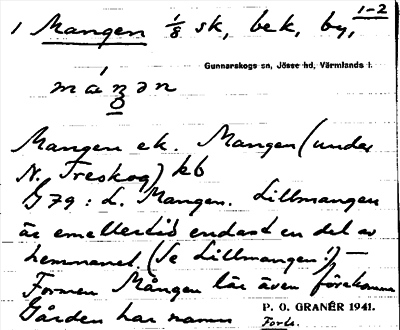 1-2
1 Mangen 1/8 sk, bek, by,
Gunnarskogs sn, Jösse hd, Värmlands l.
Mangen ek. Mangen (under
N. Treskog) kb
G 79: L. Mangen. Lillmangen
är emellertid endast en del av
hemmanet. (Se Lillmangen!) —
Formen Mången lär även förekomma
Gården har namn
P. O. GRANÉR 1941.
Forts.